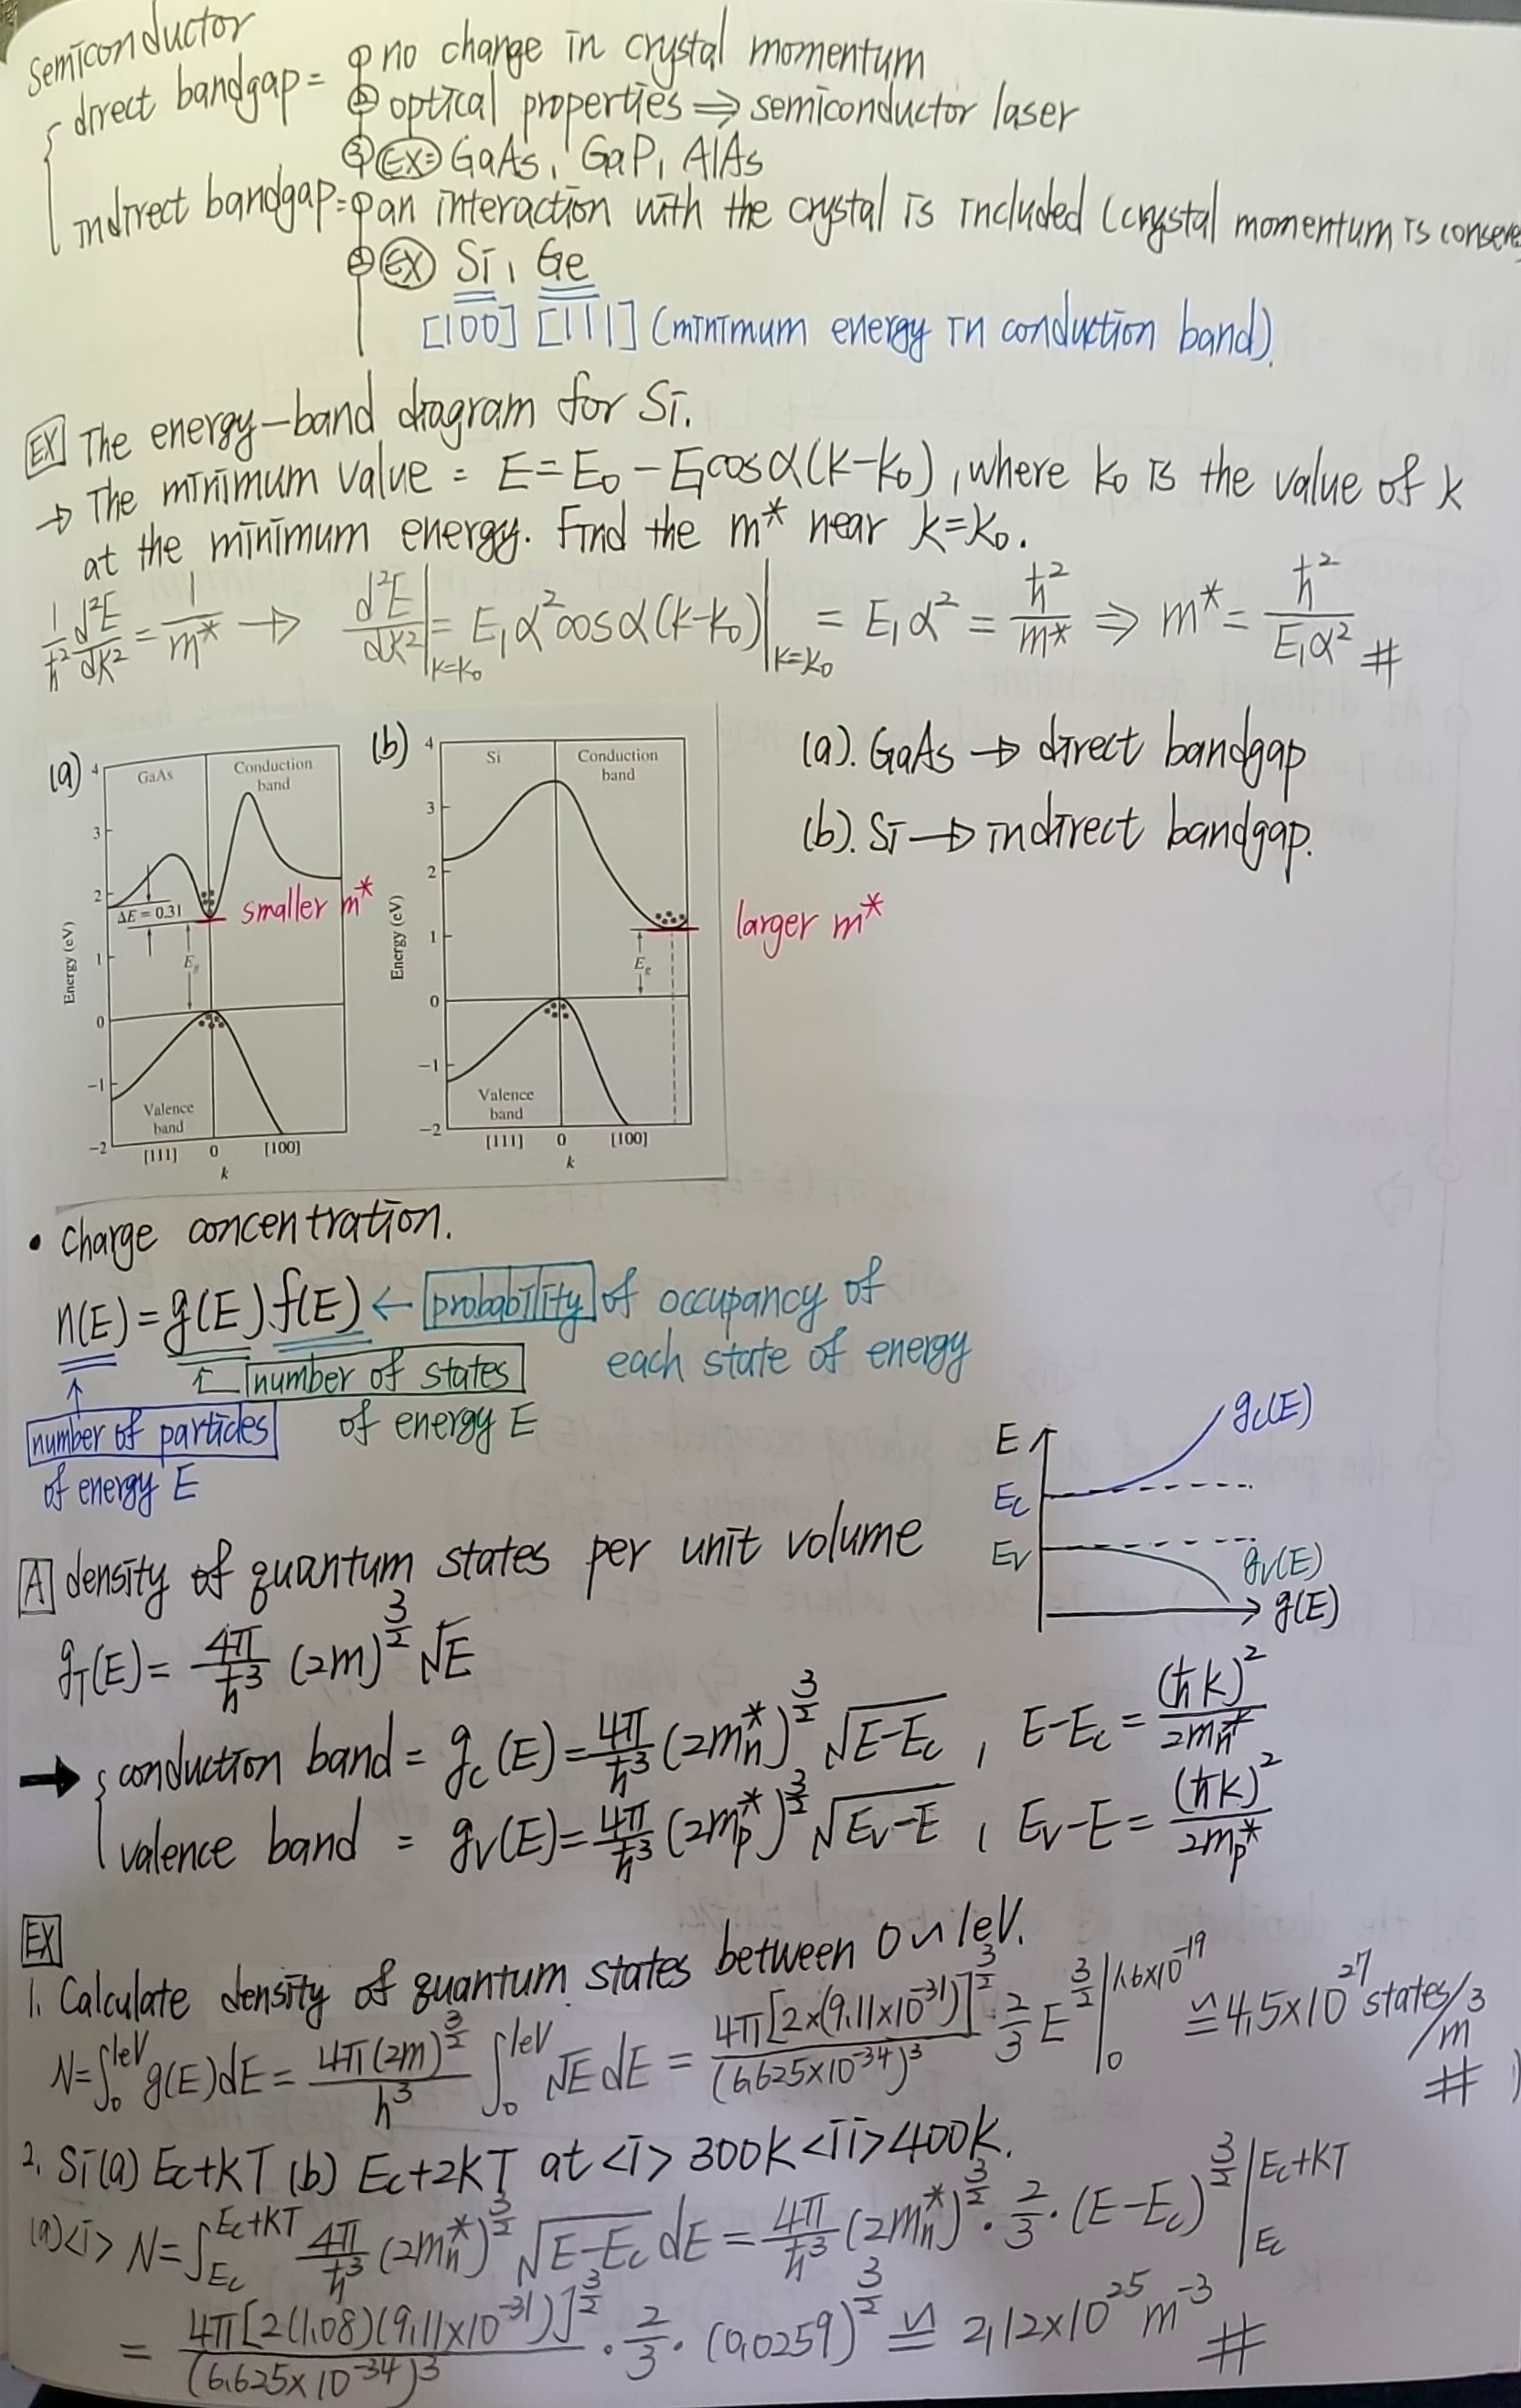 Semiconductor
direct bandgap = ① no change in crystal momentum
② optical properties ⇒ semiconductor laser
③ EX: GaAs, GaP, AlAs
indirect bandgap = ① an interaction with the crystal is included (crystal momentum is conserve
② EX Si, Ge
[100] [111] (minimum energy in conduction band).
EX The energy-band diagram for Si.
→ The minimum value = E = E₀ - E₁cosα(k-k₀), where k₀ is the value of k
at the minimum energy. Find the m* near k=k₀.
1/ħ² d²E/dk² = 1/m* → d²E/dk²|k=k₀ = E₁α²cosα(k-k₀)|k=k₀ = E₁α² = ħ²/m* ⇒ m* = ħ²/E₁α² #
(a) 4 3 2 1 0 -1 -2
GaAs
Conduction band
ΔE = 0.31
smaller m*
Eg
Energy (eV)
Valence band
[111] 0 [100]
k
(b) 4 3 2 1 0 -1 -2
Si
Conduction band
larger m*
Eg
Energy (eV)
Valence band
[111] 0 [100]
k
(a). GaAs → direct bandgap
(b). Si → indirect bandgap.
• charge concentration.
n(E) = g(E) f(E) ← probability of occupancy of
each state of energy
number of states
of energy E
number of particles
of energy E
E
gc(E)
Ec
Ev
gv(E)
g(E)
A density of quantum states per unit volume
gT(E) = 4π/ħ³ (2m)^3/2 √E
→ conduction band = gc(E) = 4π/ħ³ (2mn*)^3/2 √E-Ec , E-Ec = (ħk)²/2mn*
valence band = gv(E) = 4π/ħ³ (2mp*)^3/2 √Ev-E , Ev-E = (ħk)²/2mp*
EX
1. Calculate density of quantum states between 0 ~ 1eV.
N = ∫₀^1eV g(E)dE = 4π(2m)^3/2/h³ ∫₀^1eV √E dE = 4π[2×(9.11×10^-31)]^3/2/(6.625×10^-34)³ · 2/3 E^3/2 |₀^1.6×10^-19 ≌ 4.5×10^27 states/m³ #
2. Si (a) Ec+kT (b) Ec+2kT at <i> 300K <ii> 400K.
(a)<i> N = ∫Ec^Ec+kT 4π/ħ³ (2mn*)^3/2 √E-Ec dE = 4π/ħ³ (2mn*)^3/2 · 2/3 · (E-Ec)^3/2 |Ec^Ec+kT
= 4π[2(1.08)(9.11×10^-31)]^3/2/(6.625×10^-34)³ · 2/3 · (0.0259)^3/2 ≌ 2.12×10^25 m^-3 #